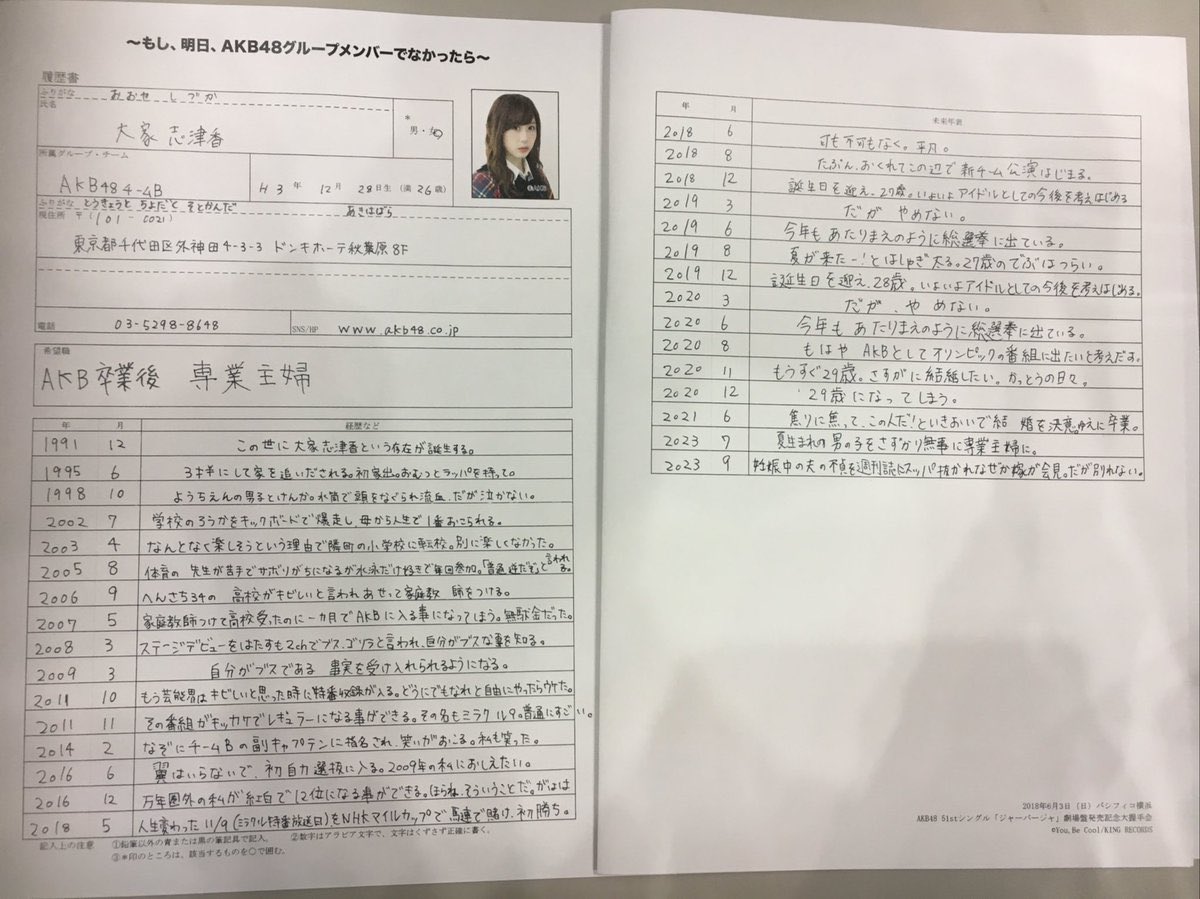 ～もし、明日、AKB48グループメンバーでなかったら～
履歴書
ふりがな おおや しづか
氏名
大家 志津香
*
男・女
所属グループ・チーム
AKB48チームB
H3年 12月 28日生 (満 26歳)
ふりがな とうきょうと ちよだく そとかんだ あきはばら
現住所 〒(101-0021)
東京都千代田区外神田4-3-3 ドンキホーテ秋葉原8F
電話 03-5298-8648
SNS/HP www.akb48.co.jp
希望職
AKB卒業後 専業主婦
年 月 経歴など
1991 12 この世に大家志津香という存在が誕生する。
1995 6 3才半にして家を追いだされる。初家出。おむつとラッパを持って。
1998 10 ようちえんの男子とけんか。水筒で頭をなぐられ流血。だが泣かない。
2002 7 学校のろうかをキックボードで爆走し、母から人生で1番おこられる。
2003 4 なんとなく楽しそうという理由で隣町の小学校に転校。別に楽しくなかった。
2005 8 体育の先生が苦手でサボりがちになるが水泳だけ好きで毎回参加。「普通逆だぞ」と言われる。
2006 9 へんさち34の高校がキビしいと言われあせって家庭教師をつける。
2007 5 家庭教師つけて高校受ったのに一カ月でAKBに入る事になってしまう。無駄金だった。
2008 3 ステージデビューをはたすも2chでブス、ゴリラと言われ、自分がブスな事を知る。
2009 3 自分がブスである事実を受け入れられるようになる。
2011 10 もう芸能界はキビしいと思った時に特番収録が入る。どうにでもなれと自由にやったらウケた。
2011 11 その番組がキッカケでレギュラーになる事ができる。その名もミラクル9。普通にすごい。
2014 2 なぞにチームBの副キャプテンに指名され、笑いがおこる。私も笑った。
2016 6 翼はいらないで、初自力選抜に入る。2009年の私におしえたい。
2016 12 万年圏外の私が紅白で12位になる事ができる。ほらね、そういうことだ。がはは
2018 5 人生変わった11/9(ミラクル特番放送日)をNHKマイルカップで馬連で賭け、初勝ち。
記入上の注意 ①鉛筆以外の青または黒の筆記具で記入。 ②数字はアラビア文字で、文字はくずさず正確に書く。
③*印のところは、該当するものを○で囲む。
年 月 未来年表
2018 6 可も不可もなく。平凡。
2018 8 たぶん、おくれてこの辺で新チーム公演はじまる。
2018 12 誕生日を迎え、27歳。いよいよアイドルとしての今後を考えはじめる
2019 3 だが やめない。
2019 6 今年もあたりまえのように総選挙に出ている。
2019 8 夏が来たー!とはしゃぎ太る。27歳のでぶはつらい。
2019 12 誕生日を迎え、28歳。いよいよアイドルとしての今後を考えはじめる。
2020 3 だが、やめない。
2020 6 今年もあたりまえのように総選挙に出ている。
2020 8 もはやAKBとしてオリンピックの番組に出たいと考えだす。
2020 11 もうすぐ29歳。さすがに結婚したい。かっとうの日々。
2020 12 29歳になってしまう。
2021 6 焦りに焦って、この人だ!といきおいで結婚を決意。ゆえに卒業。
2023 7 夏生まれの男の子をさずかり無事に専業主婦に。
2023 9 妊娠中の夫の不貞を週刊誌にスッパ抜かれなぜか嫁が会見。だが別れない。
2018年6月3日（日）パシフィコ横浜
AKB48 51stシングル「ジャーバージャ」劇場盤発売記念大握手会
©You, Be Cool/KING RECORDS